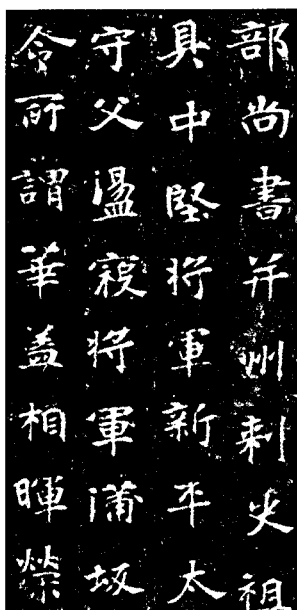 部尚書并州刺史祖
具中堅將軍新平太
守父盪寇將軍蒲坂
令所謂華蓋相暉榮